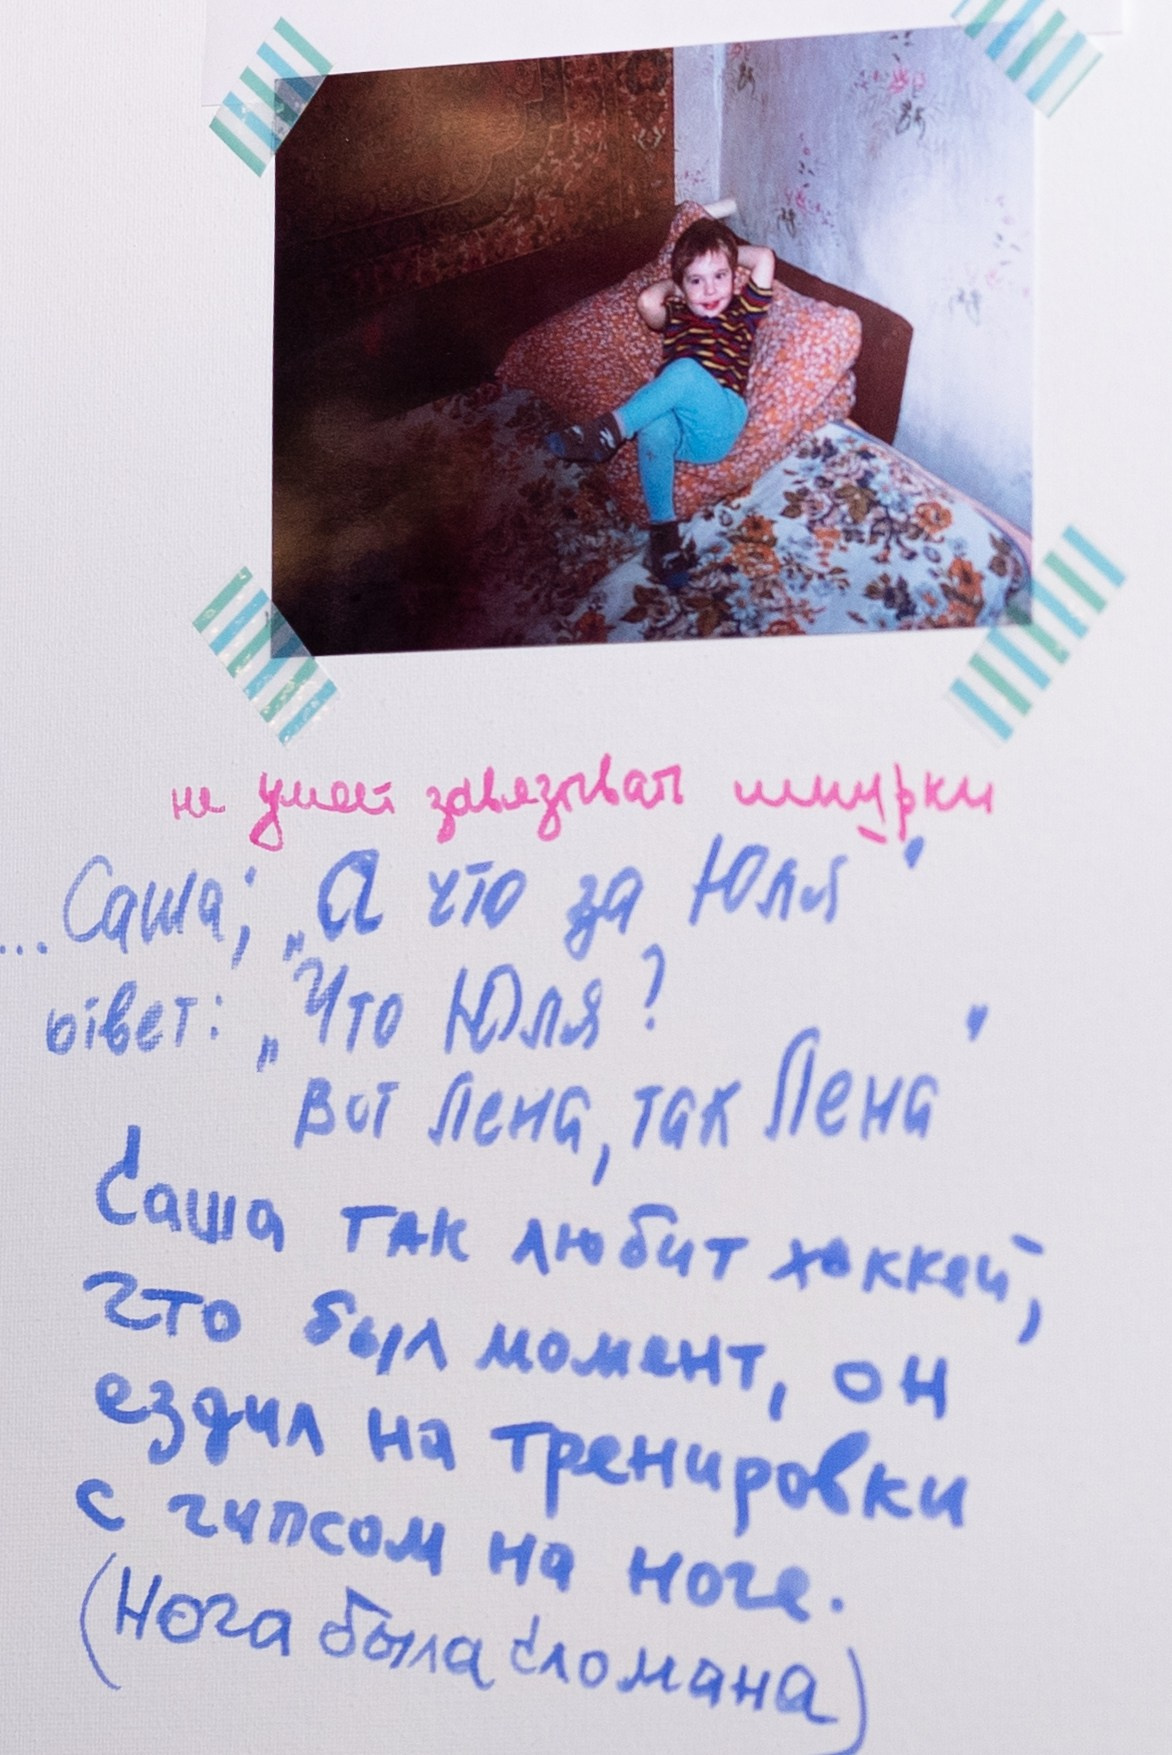 не умеет завязывать шнурки
...Саша; „А что за Юля"
ответ: „Что Юля?
Вот Лена, так Лена"
Саша так любит хоккей,
что был момент, он
ездил на тренировки
с гипсом на ноге.
(Нога была сломана)